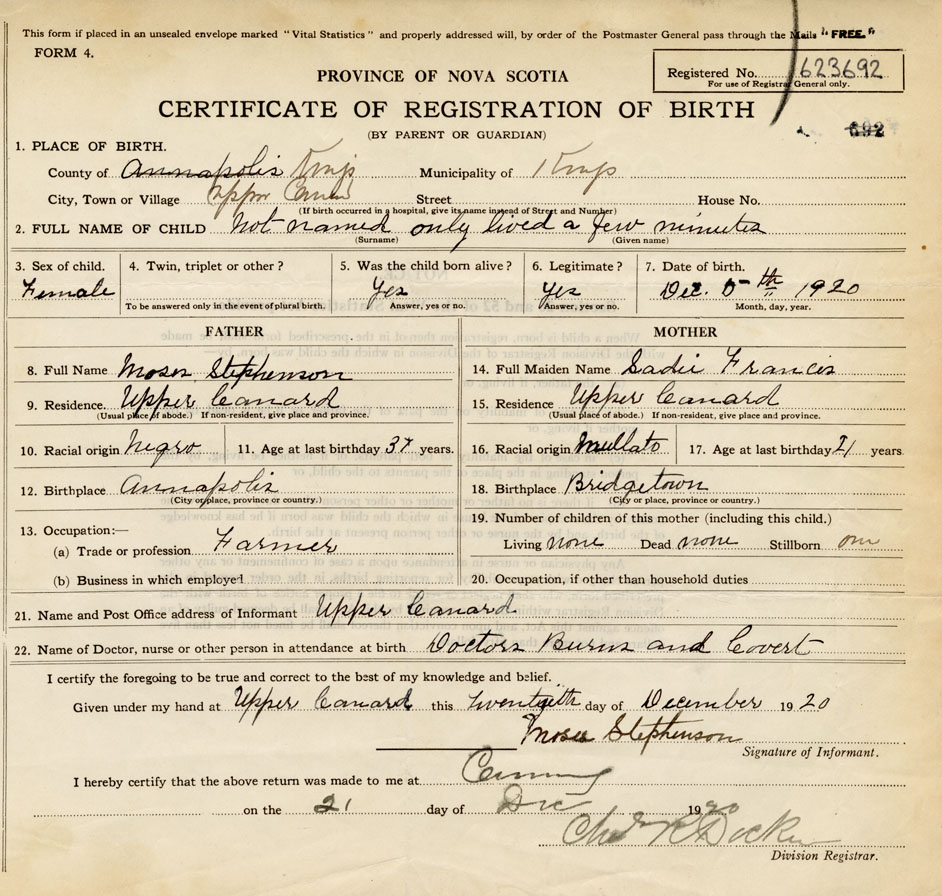 This form if placed in an unsealed envelope marked "Vital Statistics" and properly addressed will, by order of the Postmaster General pass through the Mails "FREE."
FORM 4.
Registered No. 623692
For use of Registrar General only.
PROVINCE OF NOVA SCOTIA
CERTIFICATE OF REGISTRATION OF BIRTH
(BY PARENT OR GUARDIAN)
692
1. PLACE OF BIRTH.
County of Annapolis Kings Municipality of Kings
City, Town or Village Upper Canard Street House No.
(If birth occurred in a hospital, give its name instead of Street and Number)
2. FULL NAME OF CHILD Not named only lived a few minutes
(Surname) (Given name)
3. Sex of child. 4. Twin, triplet or other? 5. Was the child born alive? 6. Legitimate? 7. Date of birth.
Female Yes Yes Dec. 5th 1920
To be answered only in the event of plural birth. Answer, yes or no. Answer, yes or no. Month, day, year.
FATHER
8. Full Name Moses Stephenson
9. Residence. Upper Canard
(Usual place of abode.) If non-resident, give place and province.
10. Racial origin Negro 11. Age at last birthday 37 years.
12. Birthplace Annapolis
(City or place, province or country.)
13. Occupation:—
(a) Trade or profession Farmer
(b) Business in which employed
MOTHER
14. Full Maiden Name Sadie Francis
15. Residence Upper Canard
(Usual place of abode.) If non-resident, give place and province.
16. Racial origin Mullato 17. Age at last birthday 21 years
18. Birthplace Bridgetown
(City or place, province or country.)
19. Number of children of this mother (including this child.)
Living none Dead none Stillborn one
20. Occupation, if other than household duties
21. Name and Post Office address of Informant Upper Canard
22. Name of Doctor, nurse or other person in attendance at birth Doctors Burns and Covert
I certify the foregoing to be true and correct to the best of my knowledge and belief.
Given under my hand at Upper Canard this Twentyith day of December 1920
Moses Stephenson
Signature of Informant.
I hereby certify that the above return was made to me at Canning
on the 21 day of Dec 1920
Chas R Docker
Division Registrar.